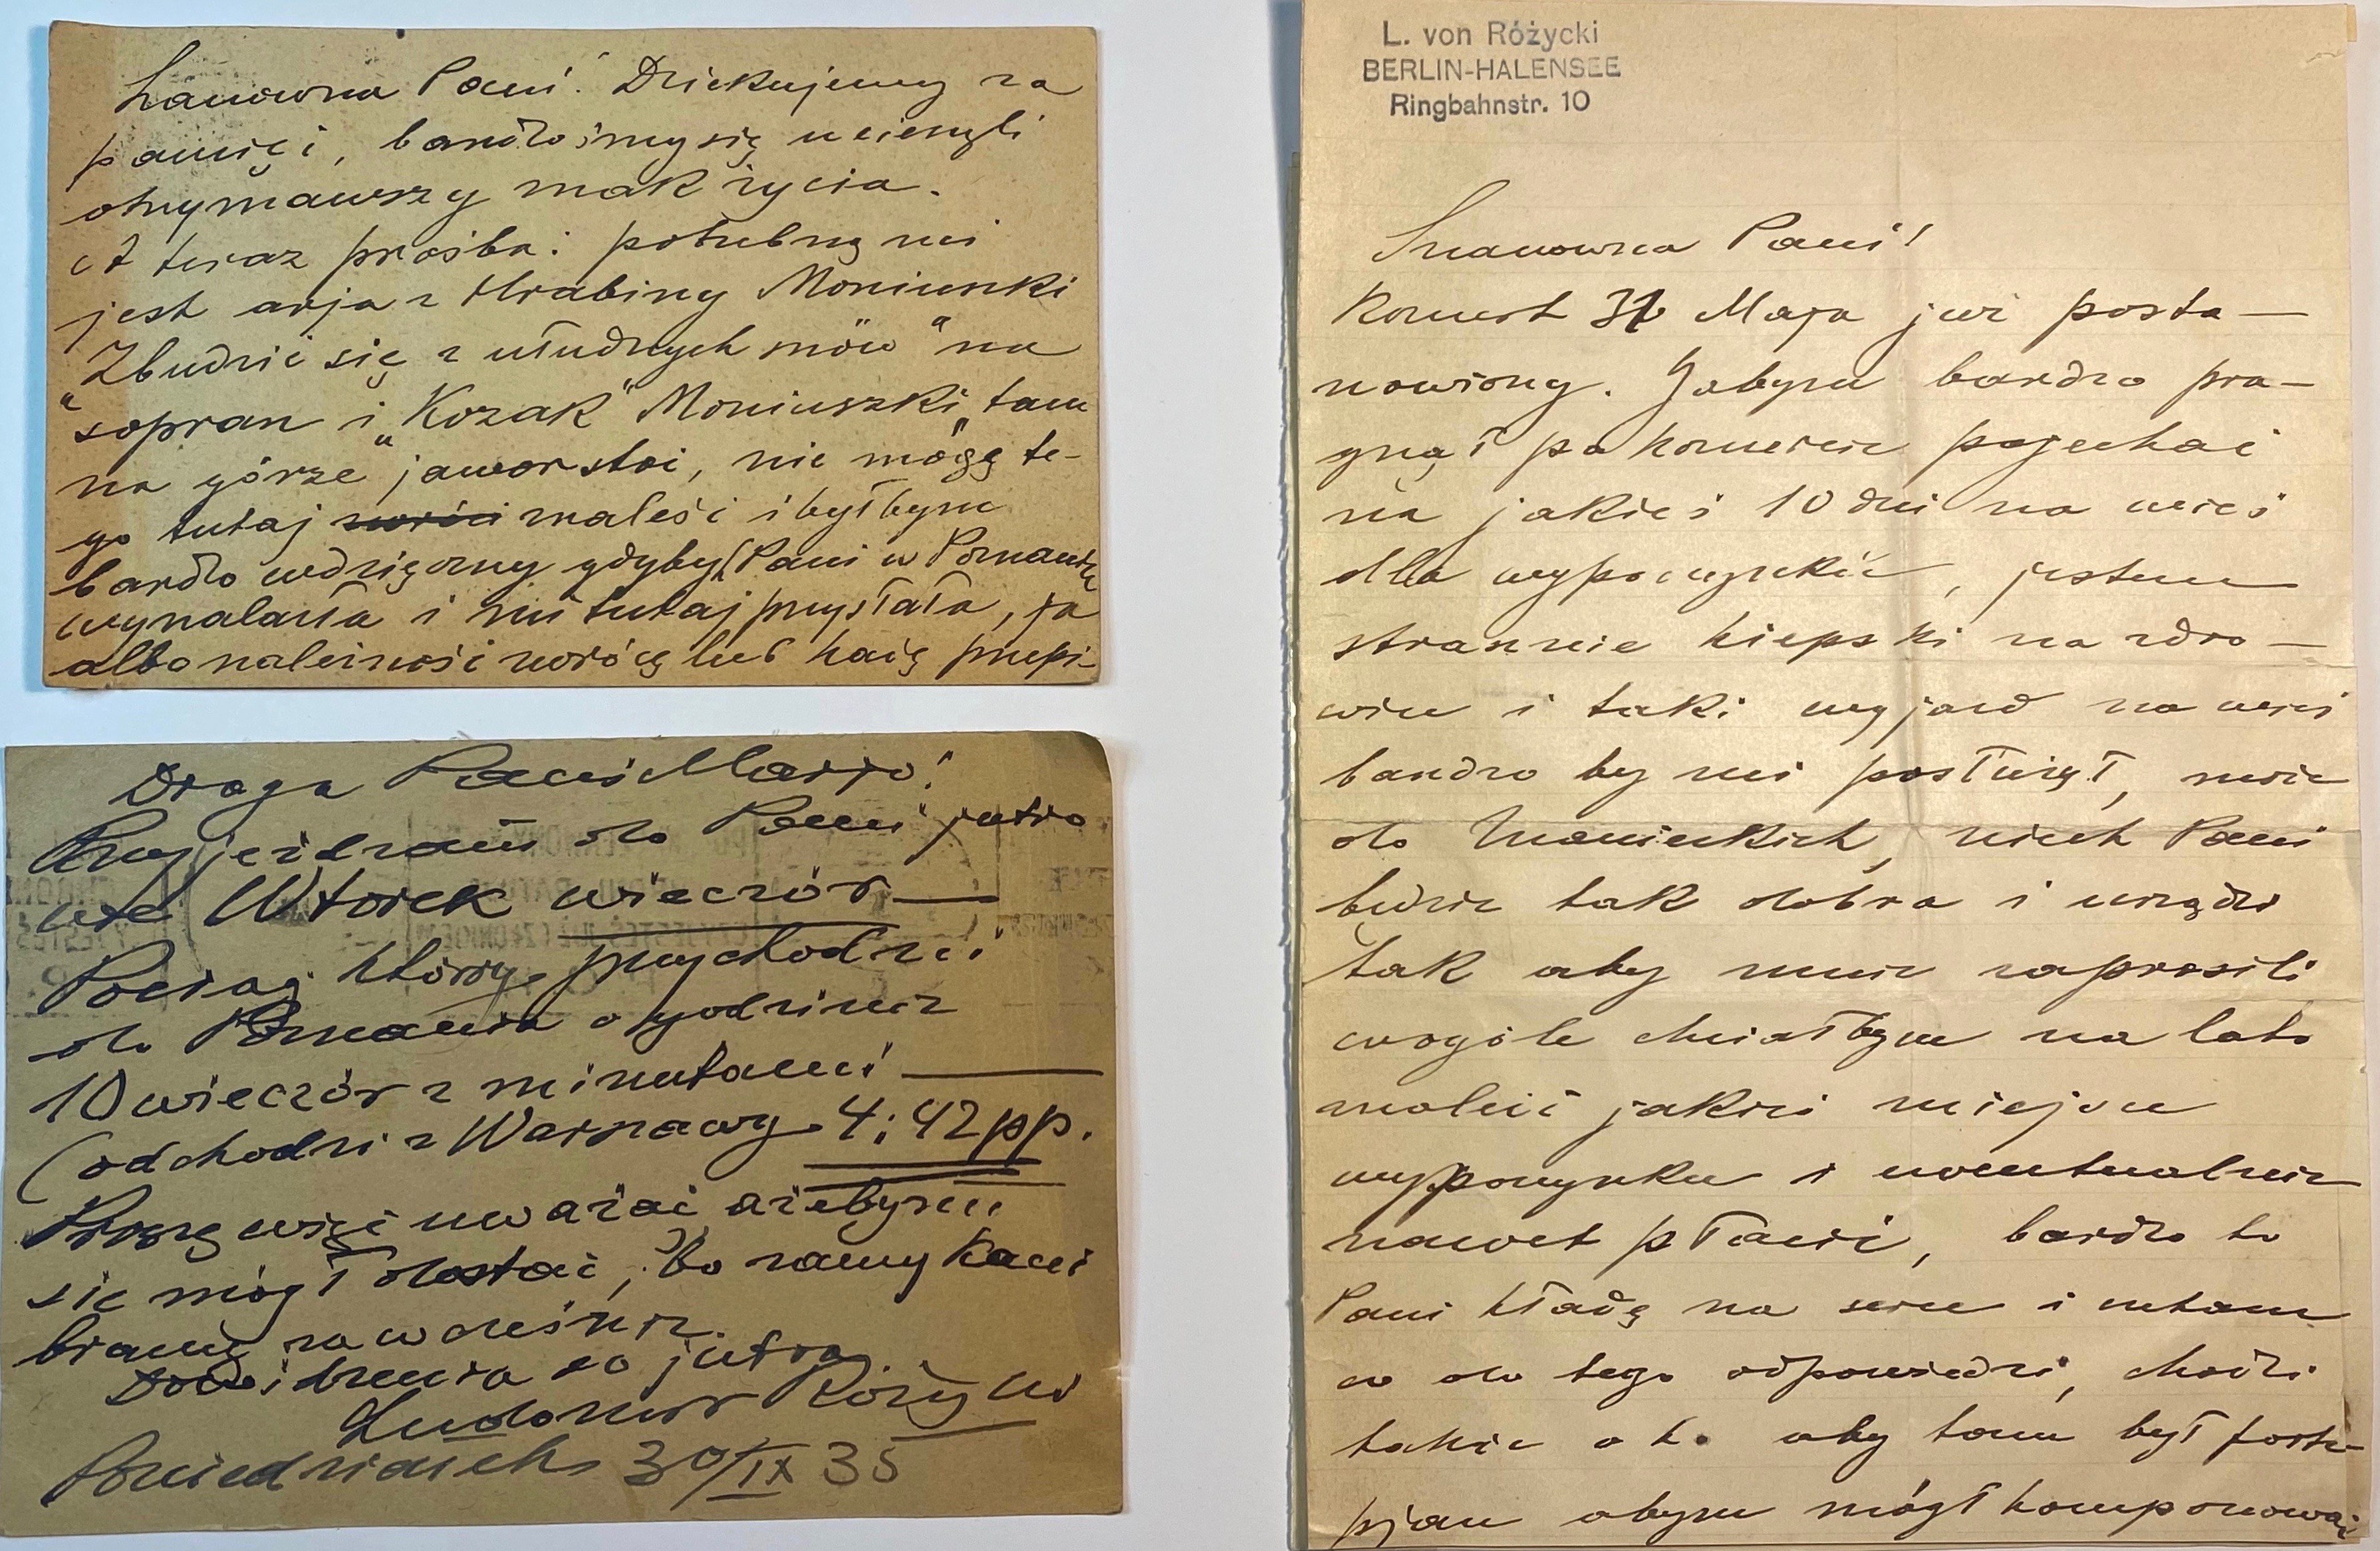 Szanowna Pani! Dziękujemy za
pamięć, bardzośmy się ucieszyli
otrzymawszy znak życia.
A teraz prośba: potrzebną mi
jest arja z Hrabiny Moniuszki
"Zbudzić się z ułudnych snów" na
sopran i „Kozak" Moniuszki „tam
na górze jawor stoi, nie mogę te-
go tutaj znaleść i byłbym
bardzo wdzięczny gdyby Pani w Poznaniu
wynalazła i mi tutaj przysłała, ja
albo należność zwrócę lub każę przepi-
Droga Pani Marjo!
Przyjeżdżam do Pani jutro
we Wtorek wieczór —
Pociąg który przychodzi
do Poznania o godzinie
10 wieczór z minutami —
(odchodzi z Warszawy 4:42 pp.
Proszę więc uważać ażebym
się mógł dostać, bo zamykacie
bramę za wcześnie.
Dowidzenia do jutra
Ludomir Różycki
Poniedziałek 30/IX 35
L. von Różycki
BERLIN-HALENSEE
Ringbahnstr. 10
Szanowna Pani!
Koncert 31 Maja już posta—
nowiony. Jabym bardzo pra—
gnął po koncercie pojechać
na jakieś 10 dni na wieś
dla wypoczynku, jestem
strasznie kiepski na zdro—
wiu i taki wyjazd na wieś
bardzo by mi posłużył, może
do, niech Pani
będzie tak dobra i urządzi
tak aby mnie zaprosili
wogóle chciałbym na lato
znaleść jakieś miejsce
wypoczynku i ewentualnie
nawet płacić, bardzo to
Pani kładę na serce i czekam
co do tego odpowiedzi, chodzi
także o to aby tam był forte-
pjan abym mógł komponować